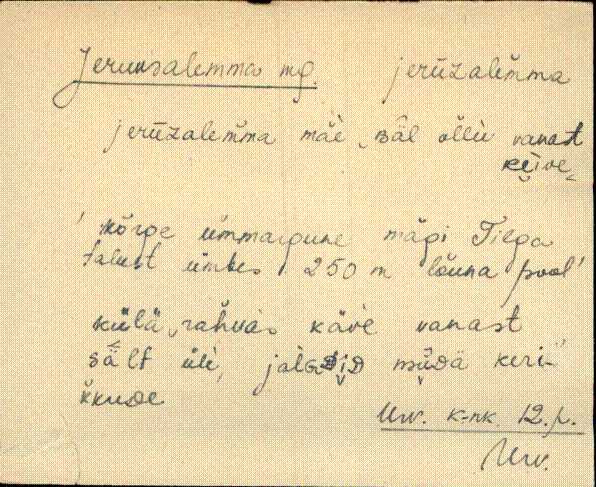 Jeruusalemma mg. jerüzalĕmma
jerüzalĕmma mäè ᴃäl ŏllu vanast
ᴋeive
'kõrge ümmargune mägi Tilga
talust umbes 250 m lõuna pool'
külä rahvas käve vanast
sält üle, jalɢ̇ᴅiᴅ müᴅä keri-
kkude
Urv. k-nk. 12.p.
Urv.